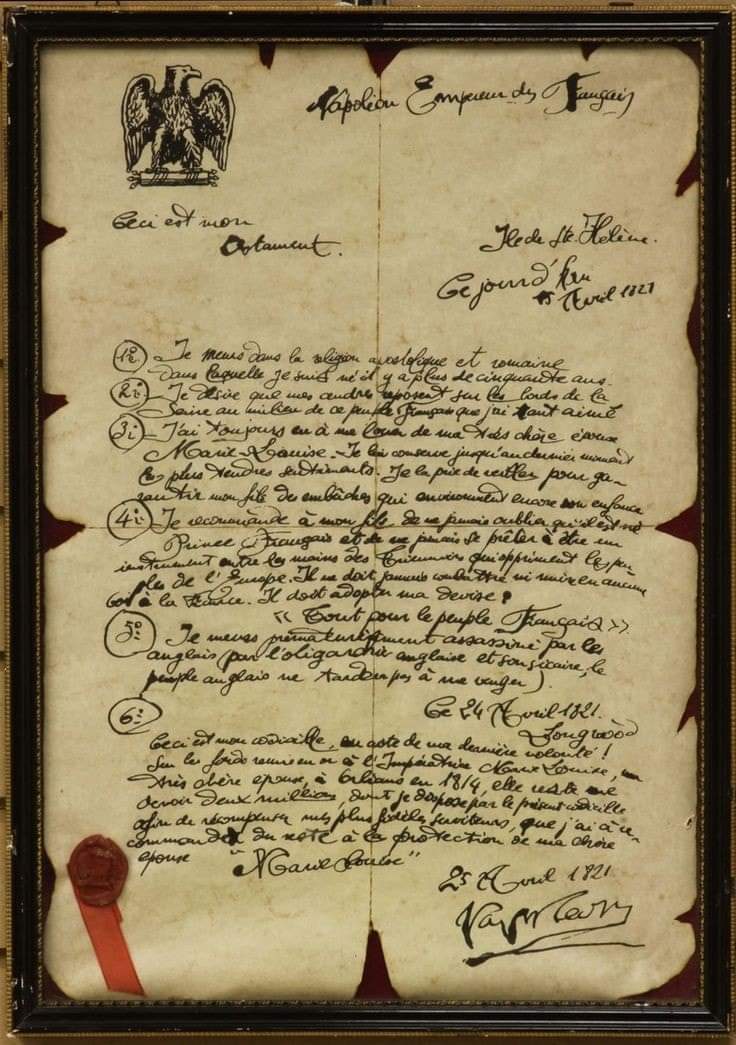 Napoléon Empereur des Français
Ceci est mon
Testament.
Ile de Ste Hélène.
Ce jourd'hu
15 Avril 1821
1º Je meurs dans la religion apostolique et romaine
dans laquelle je suis né il y a plus de cinquante ans.
2º Je désire que mes cendres reposent sur les bords de la
Seine au milieu de ce peuple Français que j'ai tant aimé
3º J'ai toujours eu à me louer de ma très chère épouse
Marie-Louise. Je lui conserve jusqu'au dernier moment
les plus tendres sentiments. Je la prie de veiller pour ga-
rantir mon fils des embûches qui environnent encore son enfance
4º Je recommande à mon fils de ne jamais oublier qu'il est né
Prince Français et de ne jamais se prêter à être un
instrument entre les mains des Triumvirs qui oppriment les peu
ples de l'Europe. Il ne doit jamais combattre ni nuire en aucune
à la France. Il doit adopter ma devise :
"Tout pour le peuple Français"
5º Je meurs prématurément assassiné par les
anglais (par l'oligarchie anglaise et son sicaire, le
peuple anglais ne tardera pas à me venger).
Ce 24 Avril 1821.
Longwood
6º
Ceci est mon codicille, ou acte de ma dernière volonté !
Sur les fonds remis en or à l'Impératrice Marie Louise, ma
très chère epouse, à Orléans en 1814, elle reste me
devoir deux millions, dont je dispose par le présent codicille
afin de récompenser mes plus fidèles serviteurs, que j'ai à re-
commander du reste à la protection de ma chère
épouse "Marie Louise"
25 Avril 1821.
Napoléon